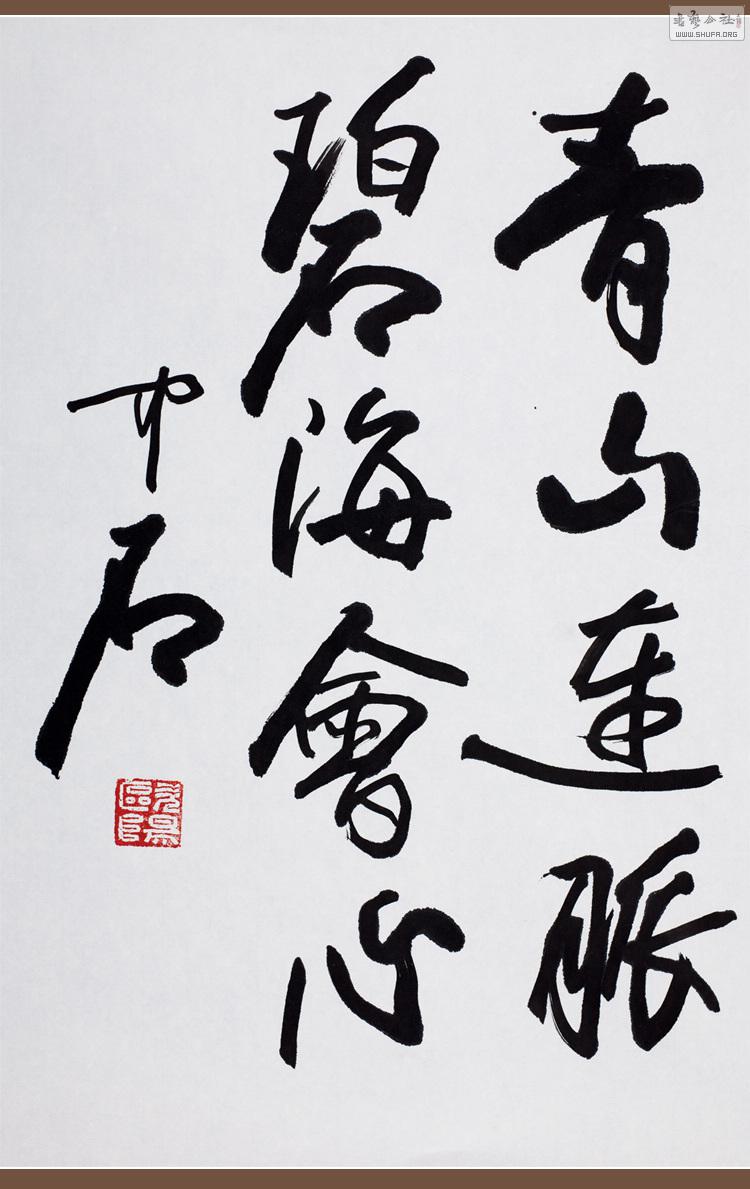 青山連脈
碧海會心
中石
歐陽
書藝公社
WWW.SHUFA.ORG